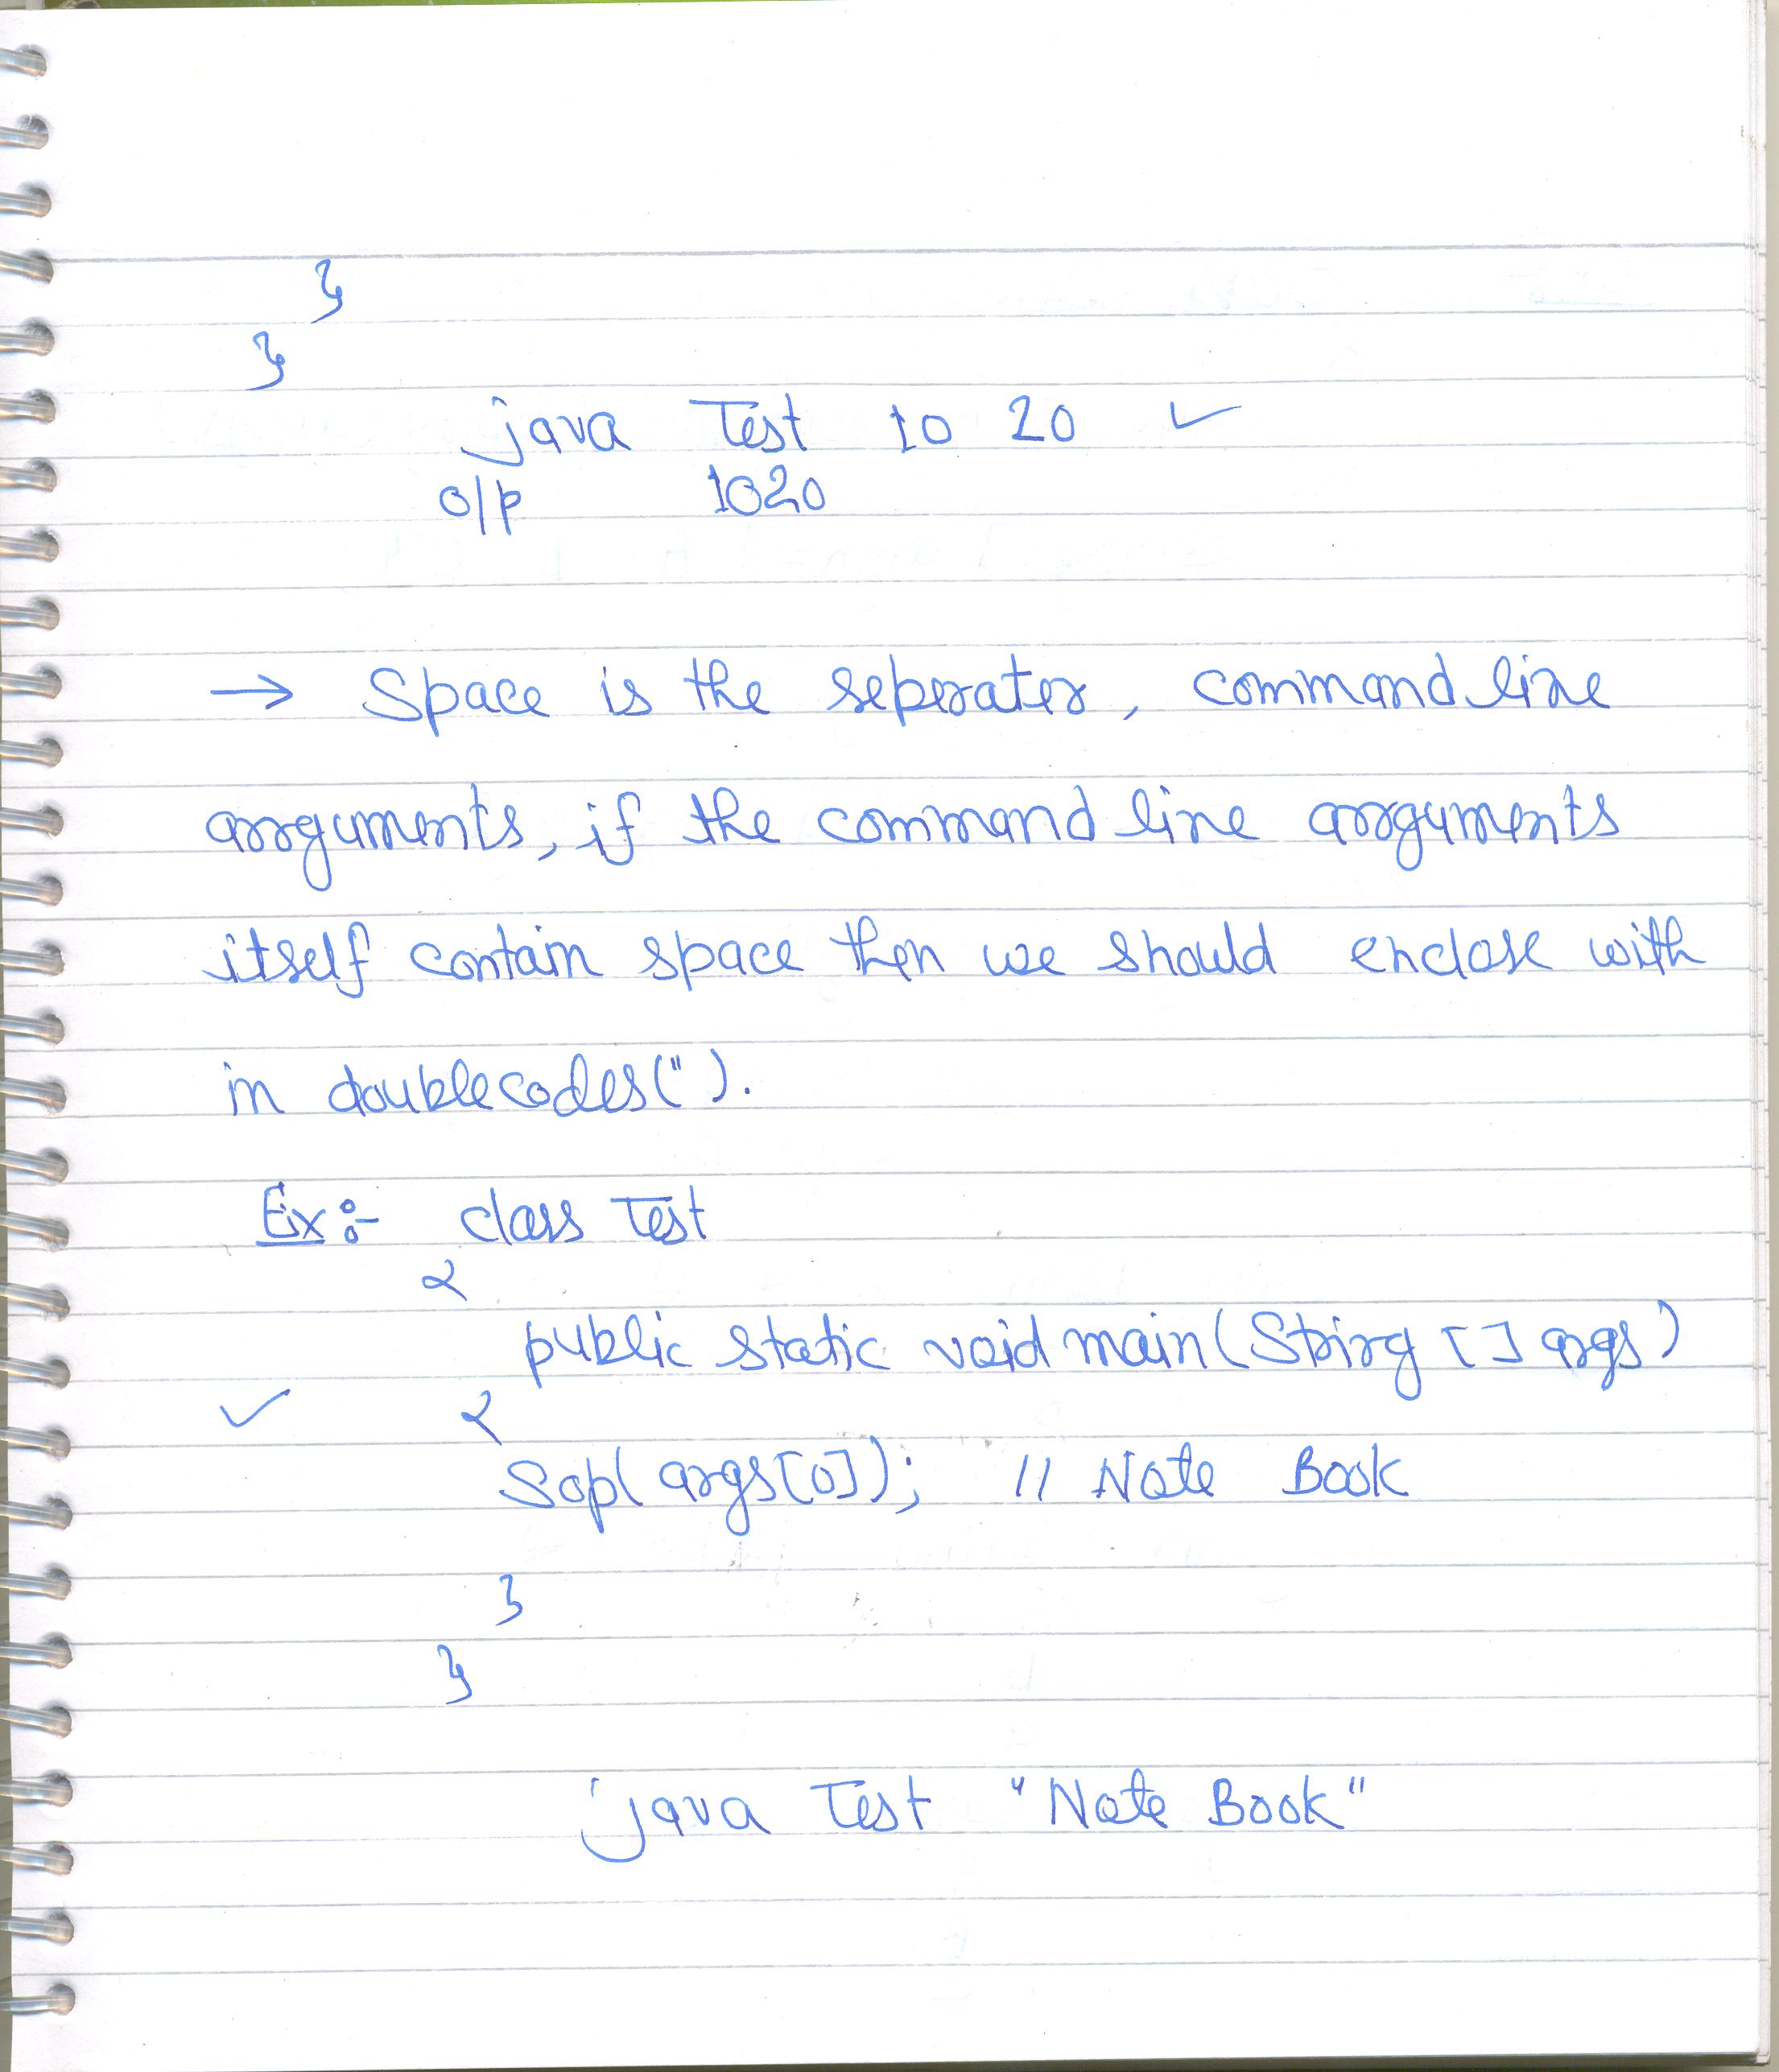 }
}
java Test 10 20 ✓
o/p 1020
→ Space is the seperator, command line
arguments, if the command line arguments
itself contain space then we should enclose with
in doublecodes(").
Ex:- class Test
{
public static void main(String [] args)
✓ {
Sop(args[0]); // Note Book
}
}
java Test "Note Book"